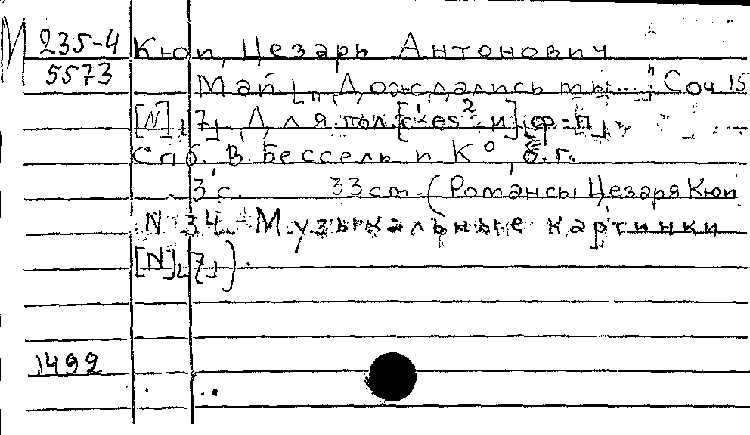 М 235-4 Кюи, Цезарь Антонович
5573 Май [„Дождались мы..." Соч. 15
[N] [7] Для гол. [c¹-es² и] ф-п.
Спб. В. Бессель и К⁰, б. г.
3 с. 33 см. (Романсы Цезаря Кюи
N 34. Музыкальные картинки
[N] [7]).
1499